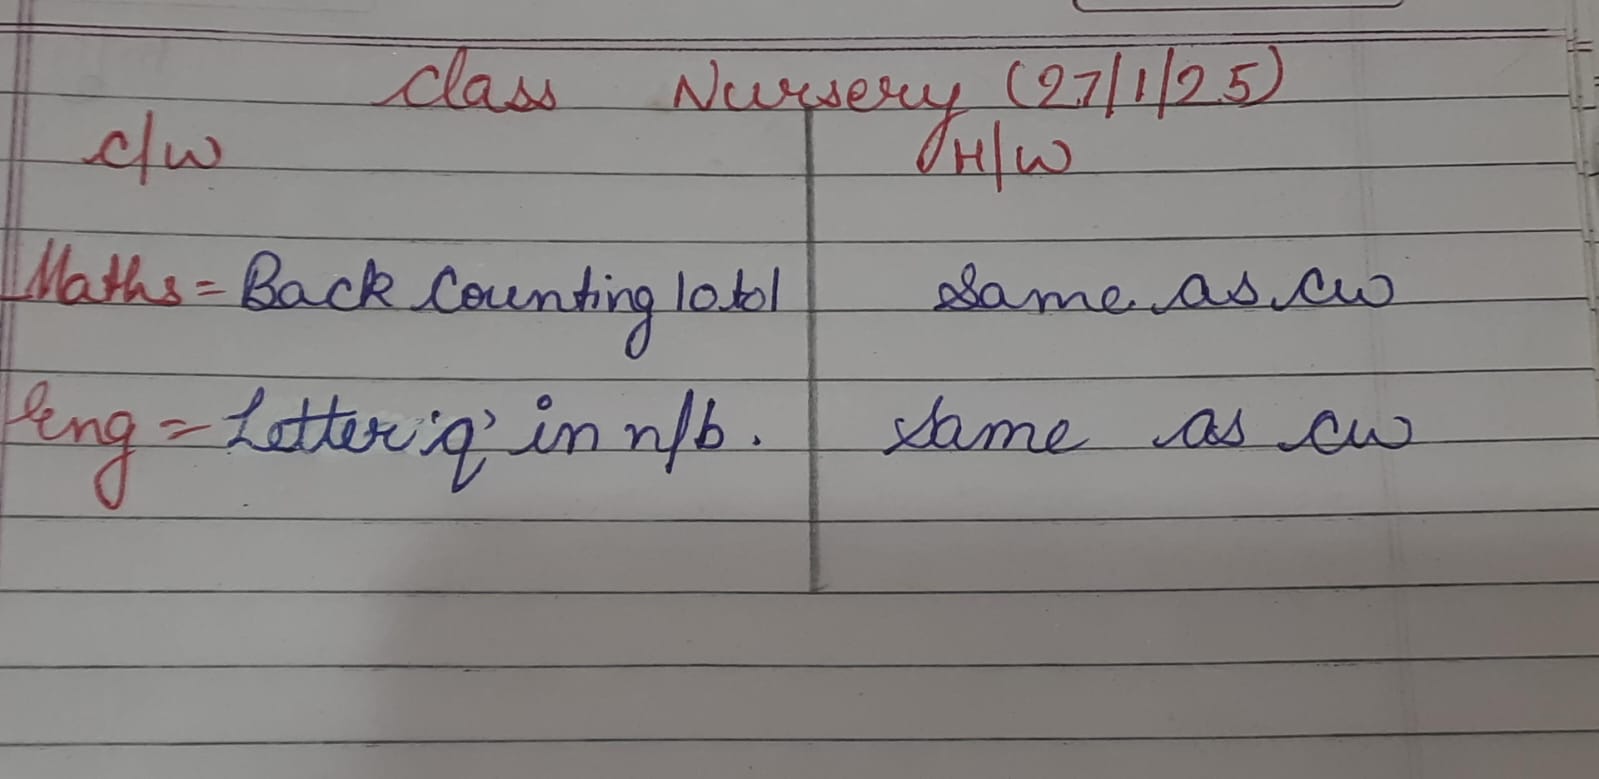 Class Nursery (27/1/25)
C/W H/W
Maths = Back Counting 10 to 1 Same as cw
Eng = Letter 'q' in n/b. Same as cw